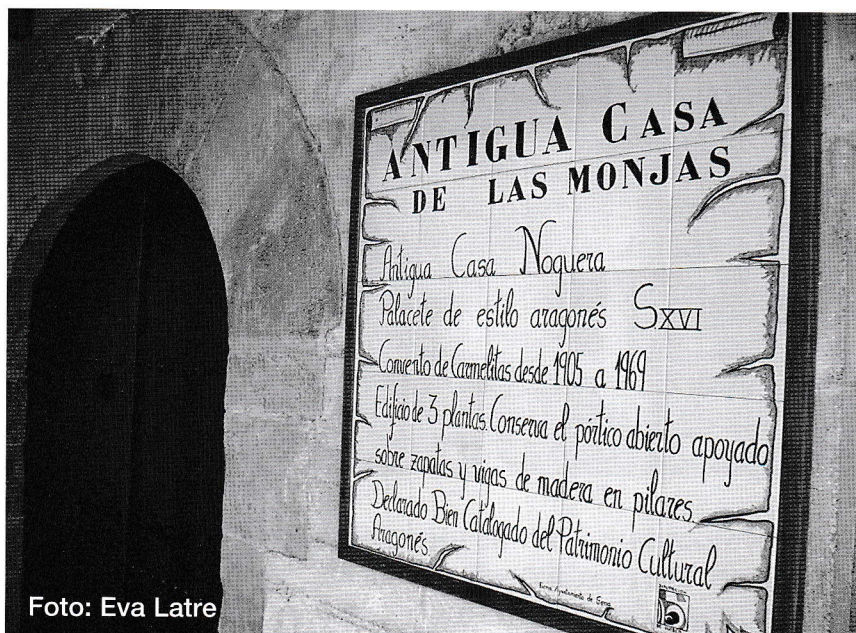 ANTIGUA CASA
DE LAS MONJAS
Antigua Casa Noguera
Palacete de estilo aragonés SXVI
Convento de Carmelitas desde 1905 a 1969
Edificio de 3 plantas. Conserva el pórtico abierto apoyado
sobre zapatas y vigas de madera en pilares
Declarado Bien Catalogado del Patrimonio Cultural
Aragonés
Ayuntamiento de
Foto: Eva Latre